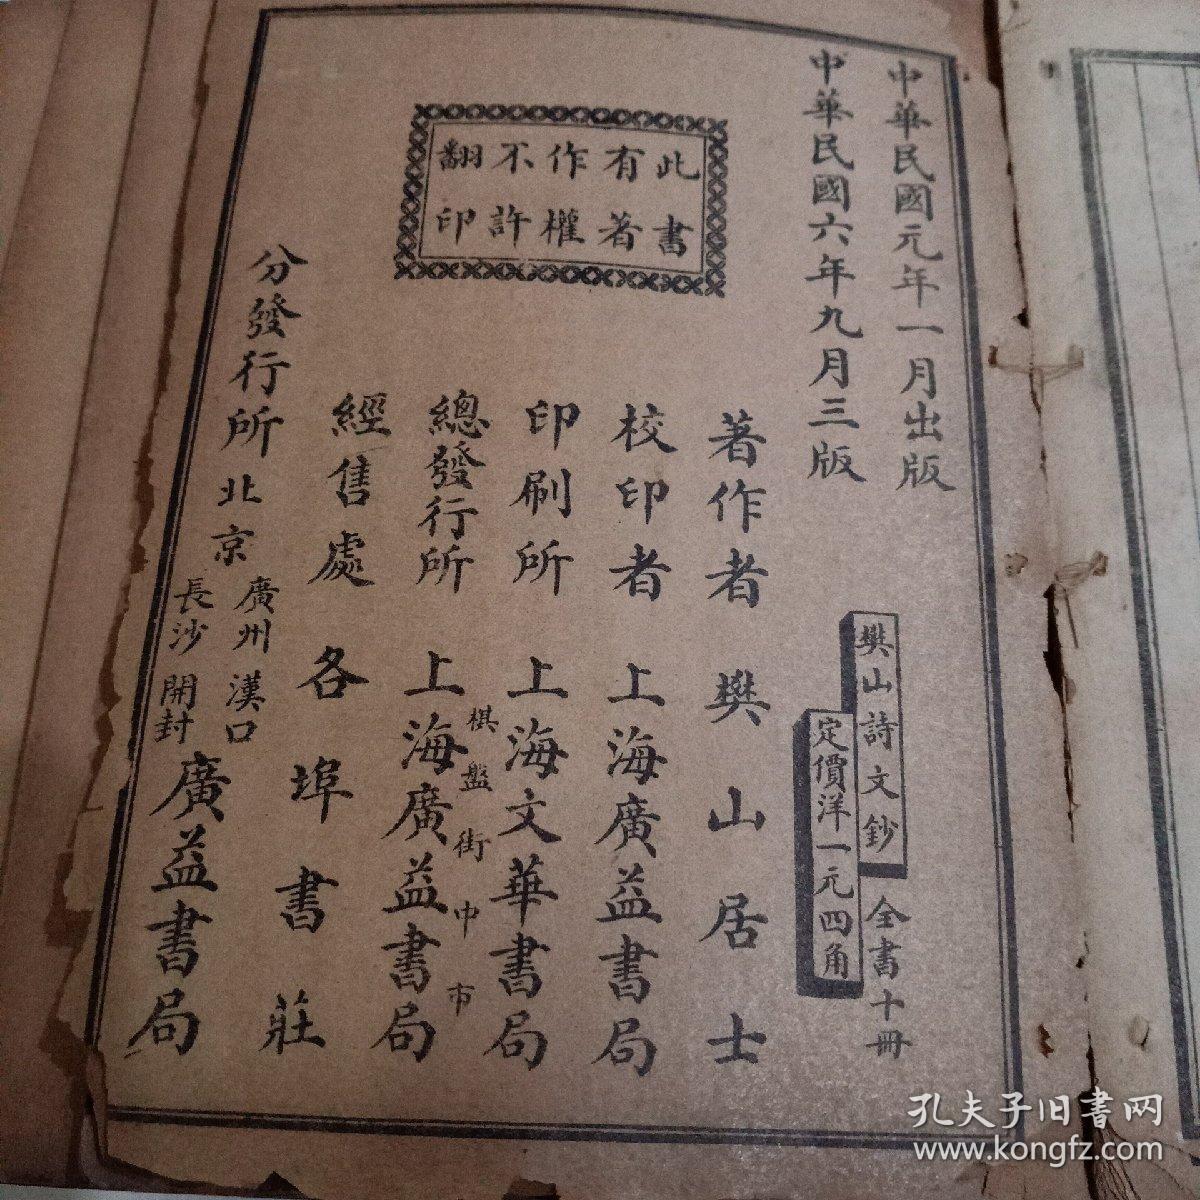 中華民國元年一月出版
中華民國六年九月三版
樊山詩文鈔
全書十冊
定價洋一元四角
此書
有著
作權
不許
翻印
著作者 樊山居士
校印者 上海廣益書局
印刷所 上海文華書局
棋盤街中市
總發行所 上海廣益書局
經售處 各埠書莊
分發行所 北京
廣州 漢口
長沙 開封
廣益書局
孔夫子旧书网
www.kongfz.com